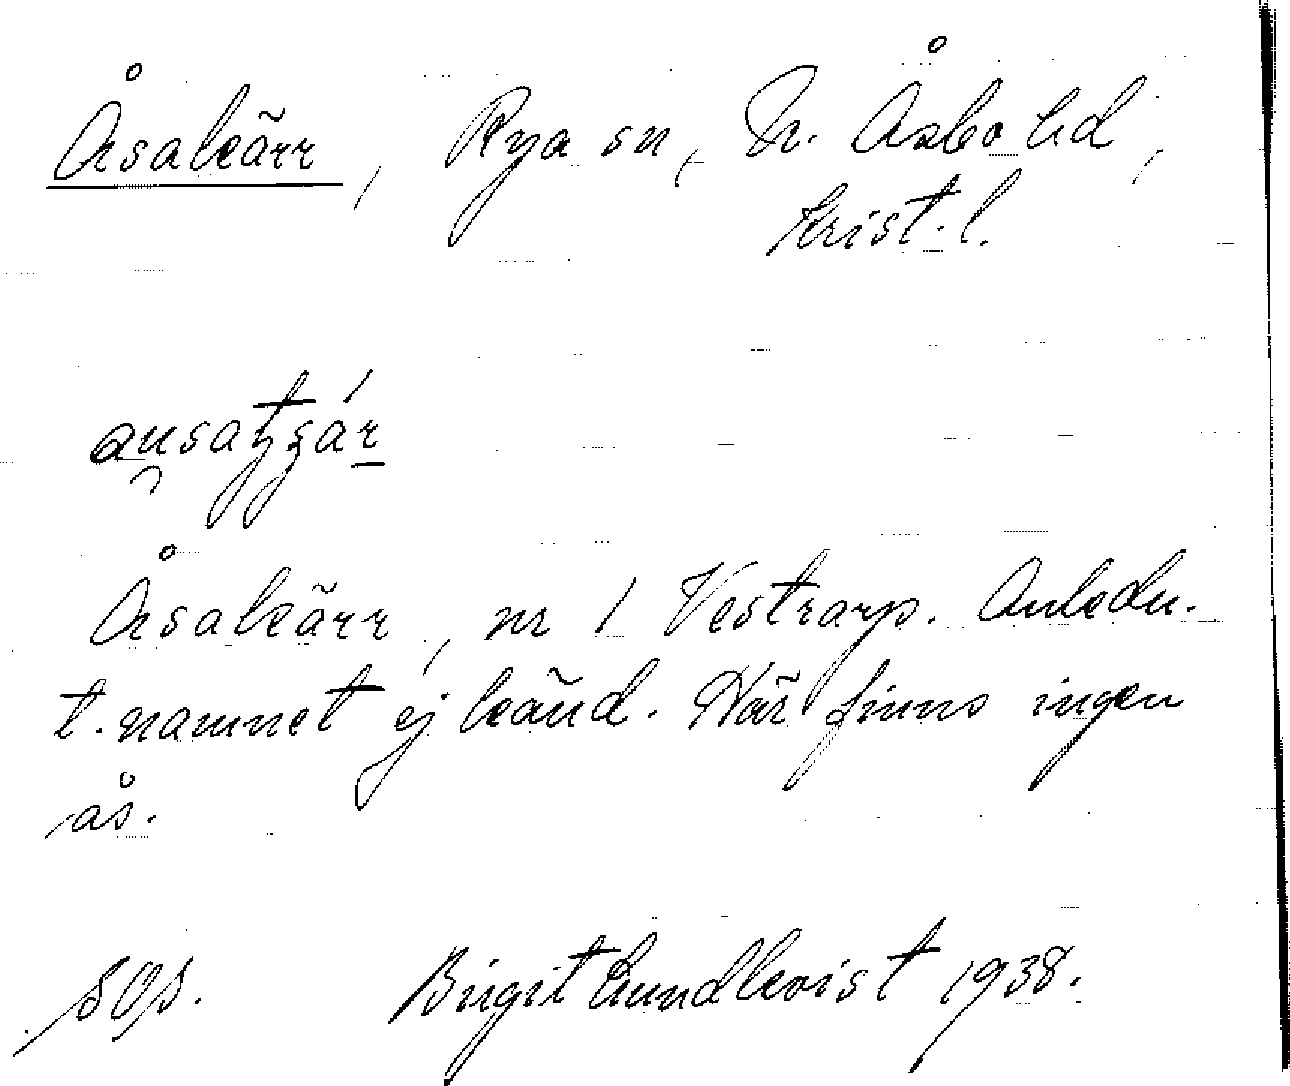 Åsakärr, Rya sn, N. Åsbo hd,
Krist. l.
Åsakärr, nr 1 Vestrarp. Anledn.
t. namnet ej känd. Här finns ingen
ås.
Birgit Lundkvist 1938.